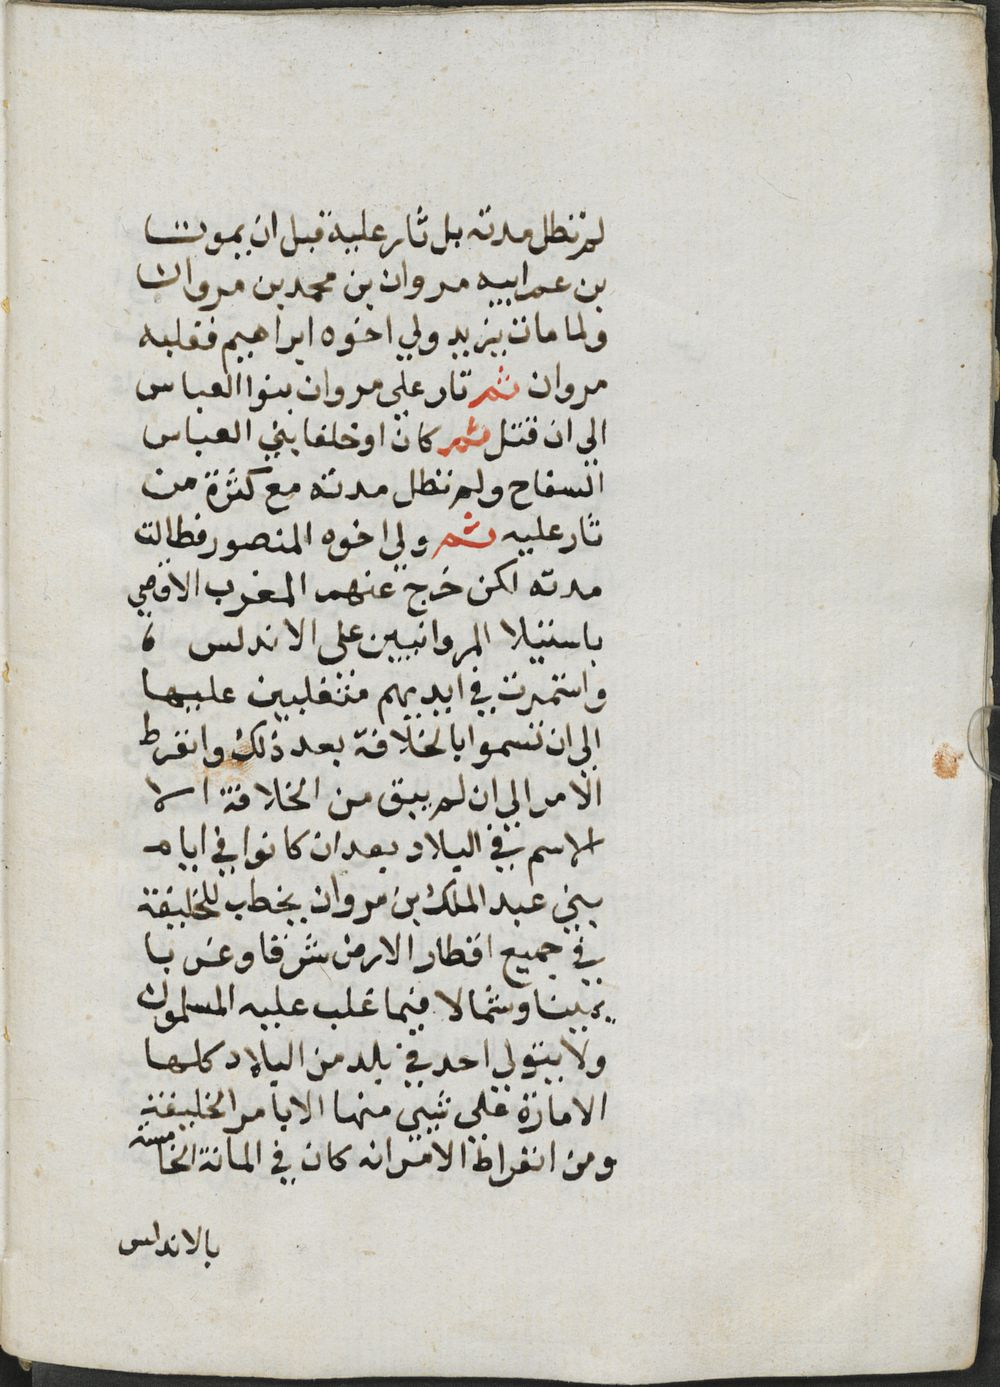 لم تطل مدته بل ثار عليه قبل ان يموت
بن عم ابيه مروان بن محمد بن مروان
ولما مات يزيد ولي اخوه ابراهيم فغلبه
مروان ثم ثار على مروان بنوا العباس
الى ان قتل ثم كان او خلفا بني العباس
السفاح ولم تطل مدته مع كثرة من
ثار عليه ثم ولي اخوه المنصور فطالت
مدته لكن خرج عنهم المغرب الاقصي
باستيلا المروانيين على الاندلس
واستمرت في ايديهم متغلبين عليها
الى ان تسموا بالخلافة بعد ذلك وانفرط
الامر الي ان لم يبق من الخلافة الا
الاسم في البلاد بعد ان كانوا في ايام
بني عبد الملك بن مروان يخطب للخليفة
في جميع اقطار الارض شرقا وغربا
يمينا وشمالا فيما غلب عليه المسلمون
ولا يتولى احد في بلد من البلاد كلها
الامارة على شيي منها الا بامر الخليفة
ومن انفراط الامر انه كان في المائة الخامسة
بالاندلس